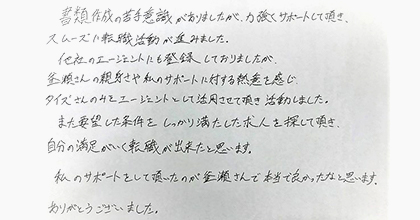 書類作成の苦手意識がありましたが、力強くサポートして頂き、
スムーズに転職活動が進みました。
他社のエージェントにも登録しておりましたが、
釜瀬さんの親身さや私のサポートに対する熱意を感じ、
タイズさんのみをエージェントとして活用させて頂き活動しました。
また要望した条件をしっかり満たした求人を探して頂き、
自分の満足がいく転職が出来たと思います。
私のサポートをして頂いたのが釜瀬さんで本当で良かったなと思います。
ありがとうございました。